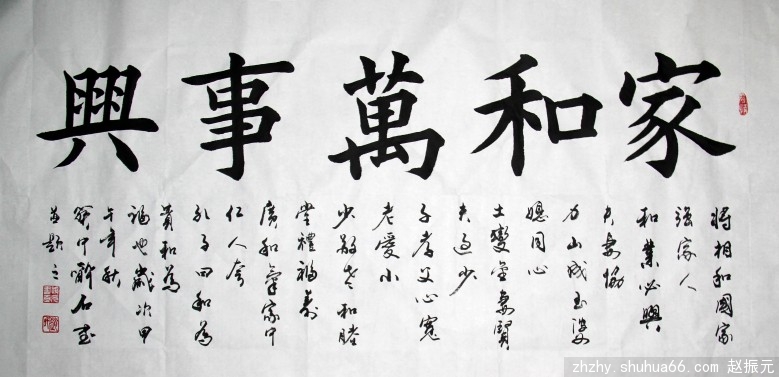 家和萬事興
將相和國家
強家人
和業必興
夫妻協
力山成玉婆
媳同心
土變金妻賢
夫過少
子孝父心寬
老愛小
少敬老和睦
堂禮福寿
廣和氣家中
仁人夸
孔子曰和為
貴和為
福也歲次甲
午年秋
石
並題
zhzhy.shuhua66.com 赵振元